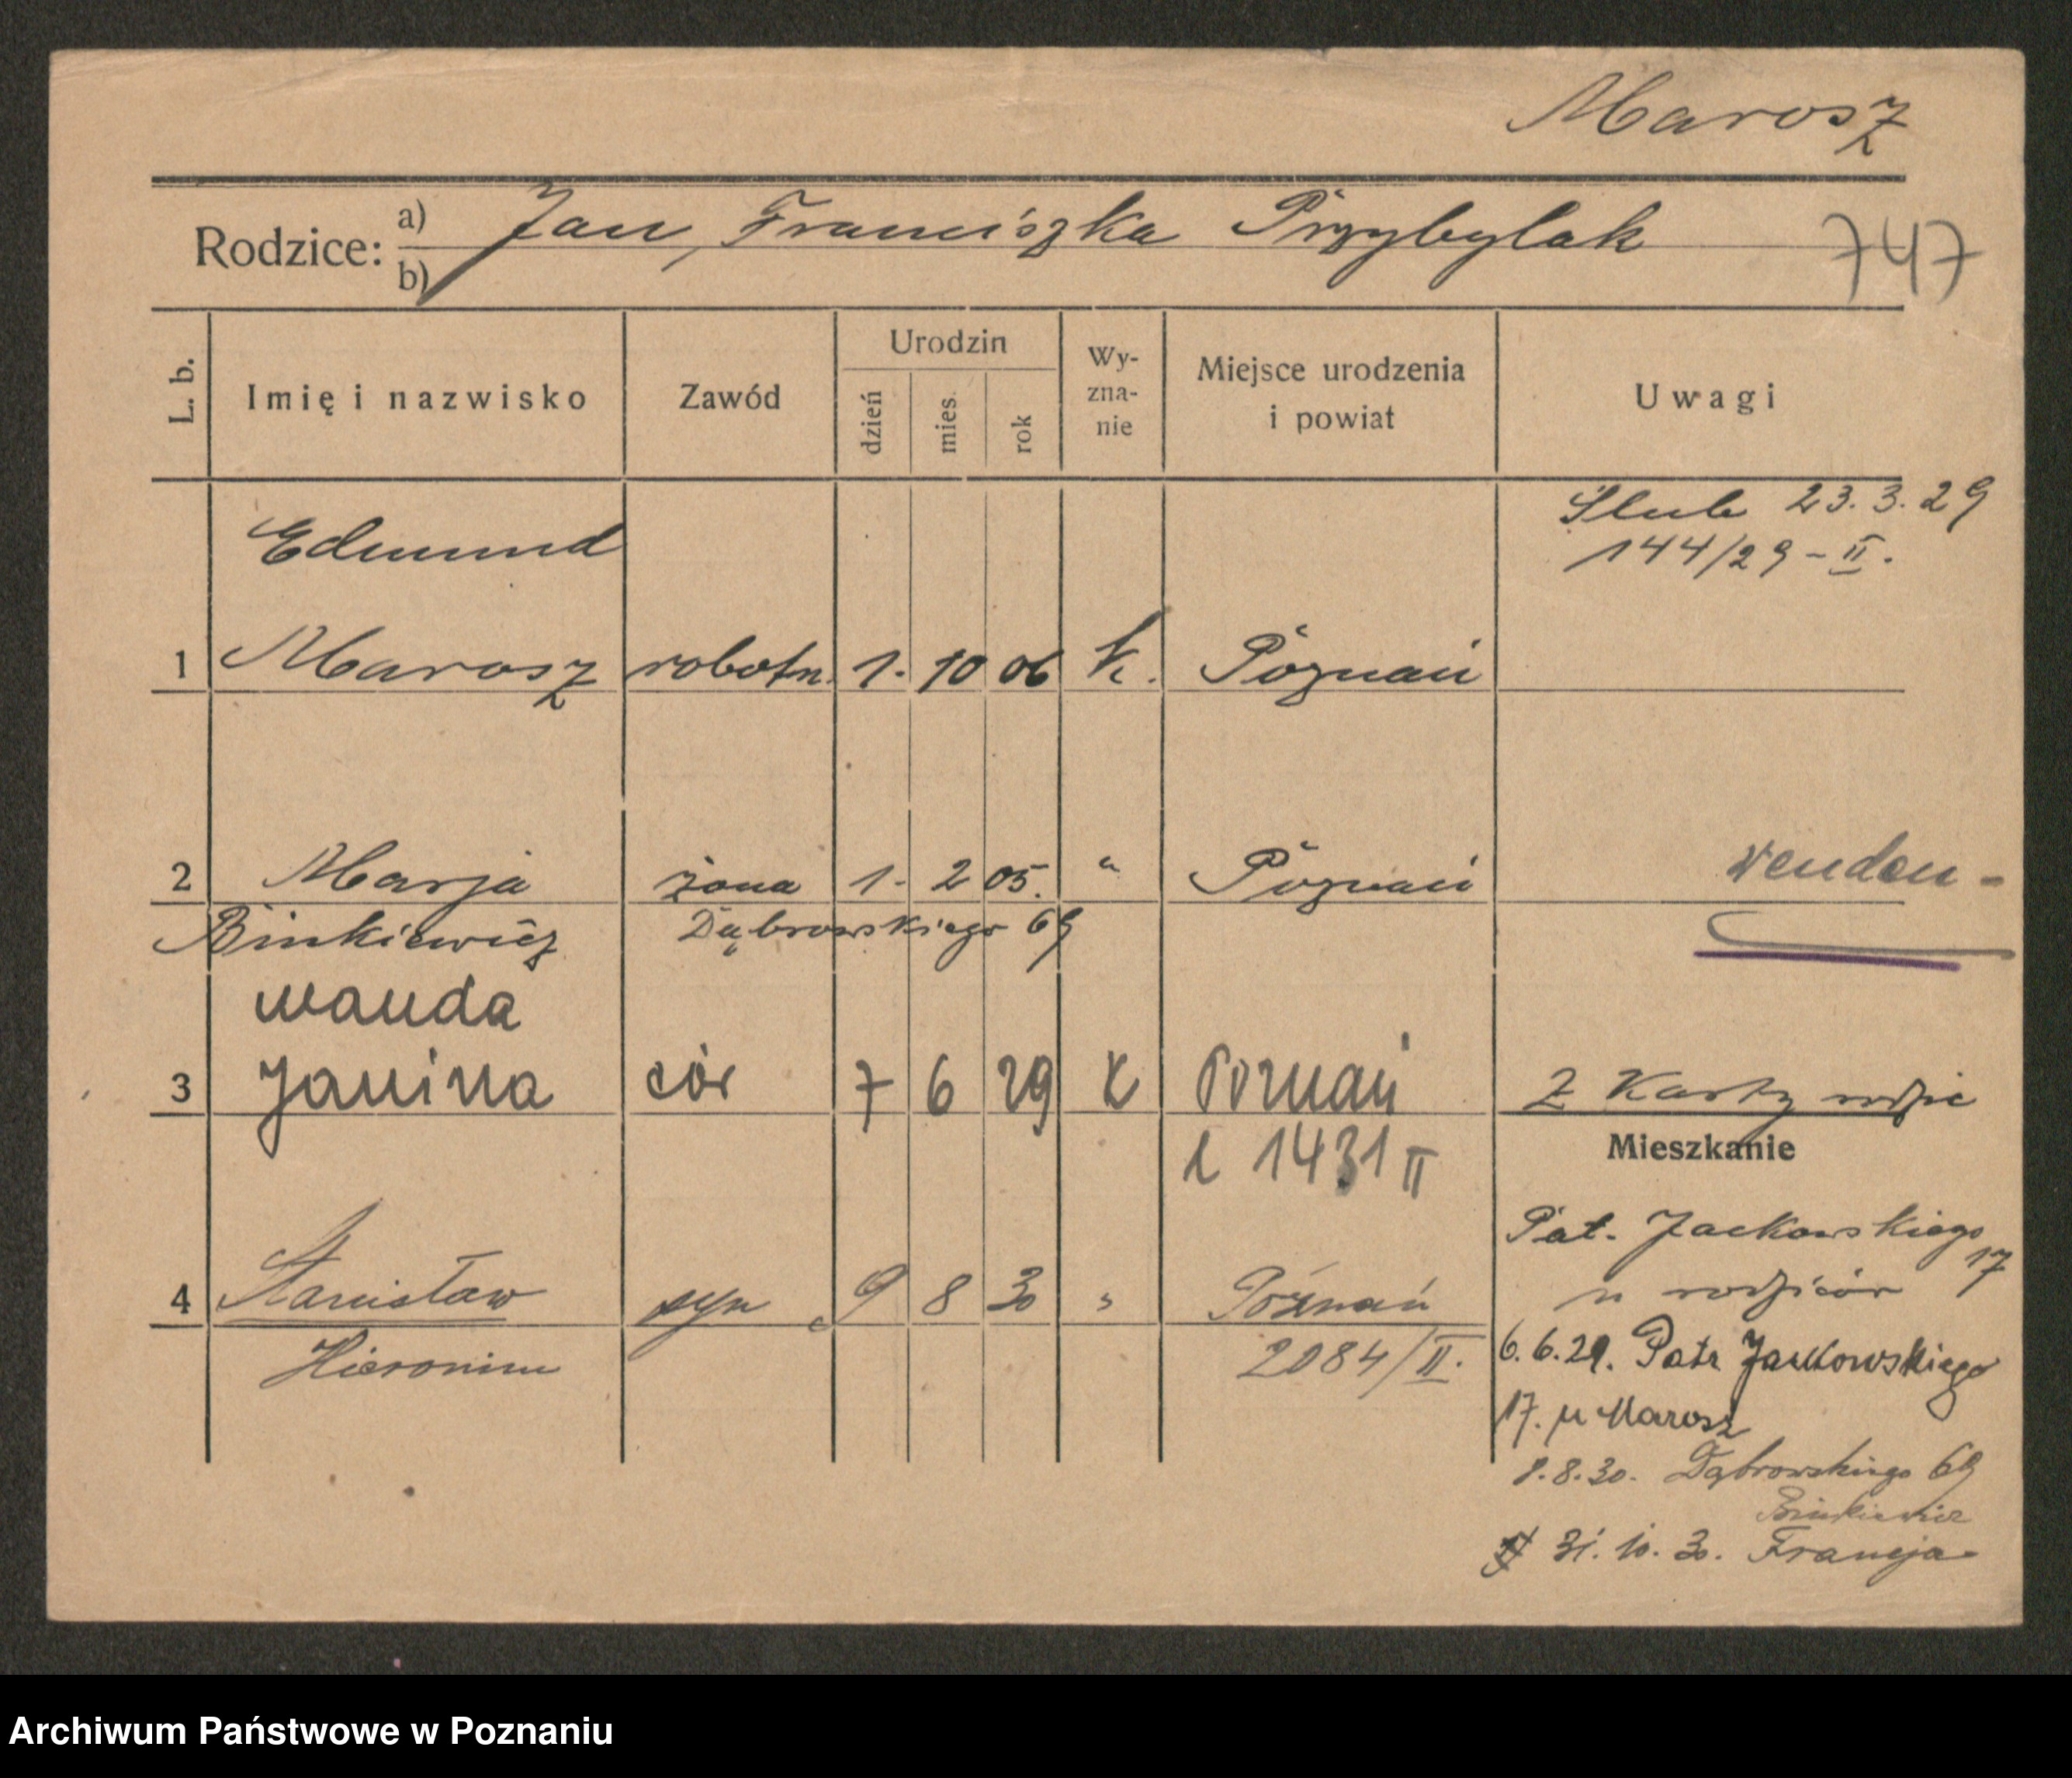 Marosz
Rodzice: a) Jan, Franciszka Przybylak
b)
747
L. b.
Imię i nazwisko
Zawód
Urodzin
dzień
mies.
rok
Wy-
zna-
nie
Miejsce urodzenia
i powiat
Uwagi
Ślub 23.3.29
144/29-II.
Edmund
1 Marosz robotn. 1. 10 06 k. Poznań
2 Marja żona 1. 2 05. " Poznań
Binkiewicz Dąbrowskiego 69
Wanda
3 Janina cór 7 6 29 K Poznań Z Karty rodzic
l 1431 II
Mieszkanie
Pat. Jackowskiego
17
u rodziców
4 Stanisław syn 9 8 30 " Poznań
Hieronim 2084/II.
6.6.29. Patr Jackowskiego
17. u Marosz
8.8.30. Dąbrowskiego 69
Binkiewicz
31.10.30. Francja
Archiwum Państwowe w Poznaniu